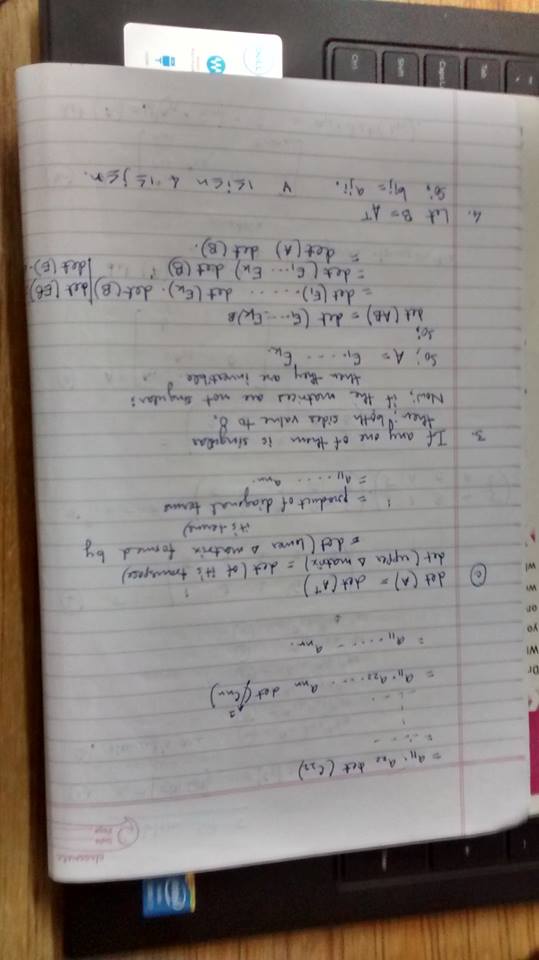 classmate
Date
Page
= a₁₁. a₂₂ det (C₂₂)
= a₁₁. a₂₂ ..... aₙₙ det (Cₙₙ)
= a₁₁ ...... aₙₙ.
(c) det (A) = det (Aᵀ)
det (upper Δ matrix) = det (of it's transpose)
= det (lower Δ matrix formed by
it's terms)
= product of diagonal terms
= a₁₁ ..... aₙₙ.
3. If any one of them is singular
then; both sides value to 0.
Now; if the matrices are not singular:
then they are invertible
So; A = E₁ ..... Eₖ.
So;
det (AB) = det (E₁ .... Eₖ)B
= det (E₁). ...... det (Eₖ). det (B)
det (EB)
det (E).
= det (E₁ .... Eₖ) det (B)
= det (A) det (B).
4. Let B = Aᵀ
So; bᵢⱼ = aⱼᵢ. ∀ 1≤i≤n & 1≤j≤n.
DELL
Ctrl
Shift
Tab
intel